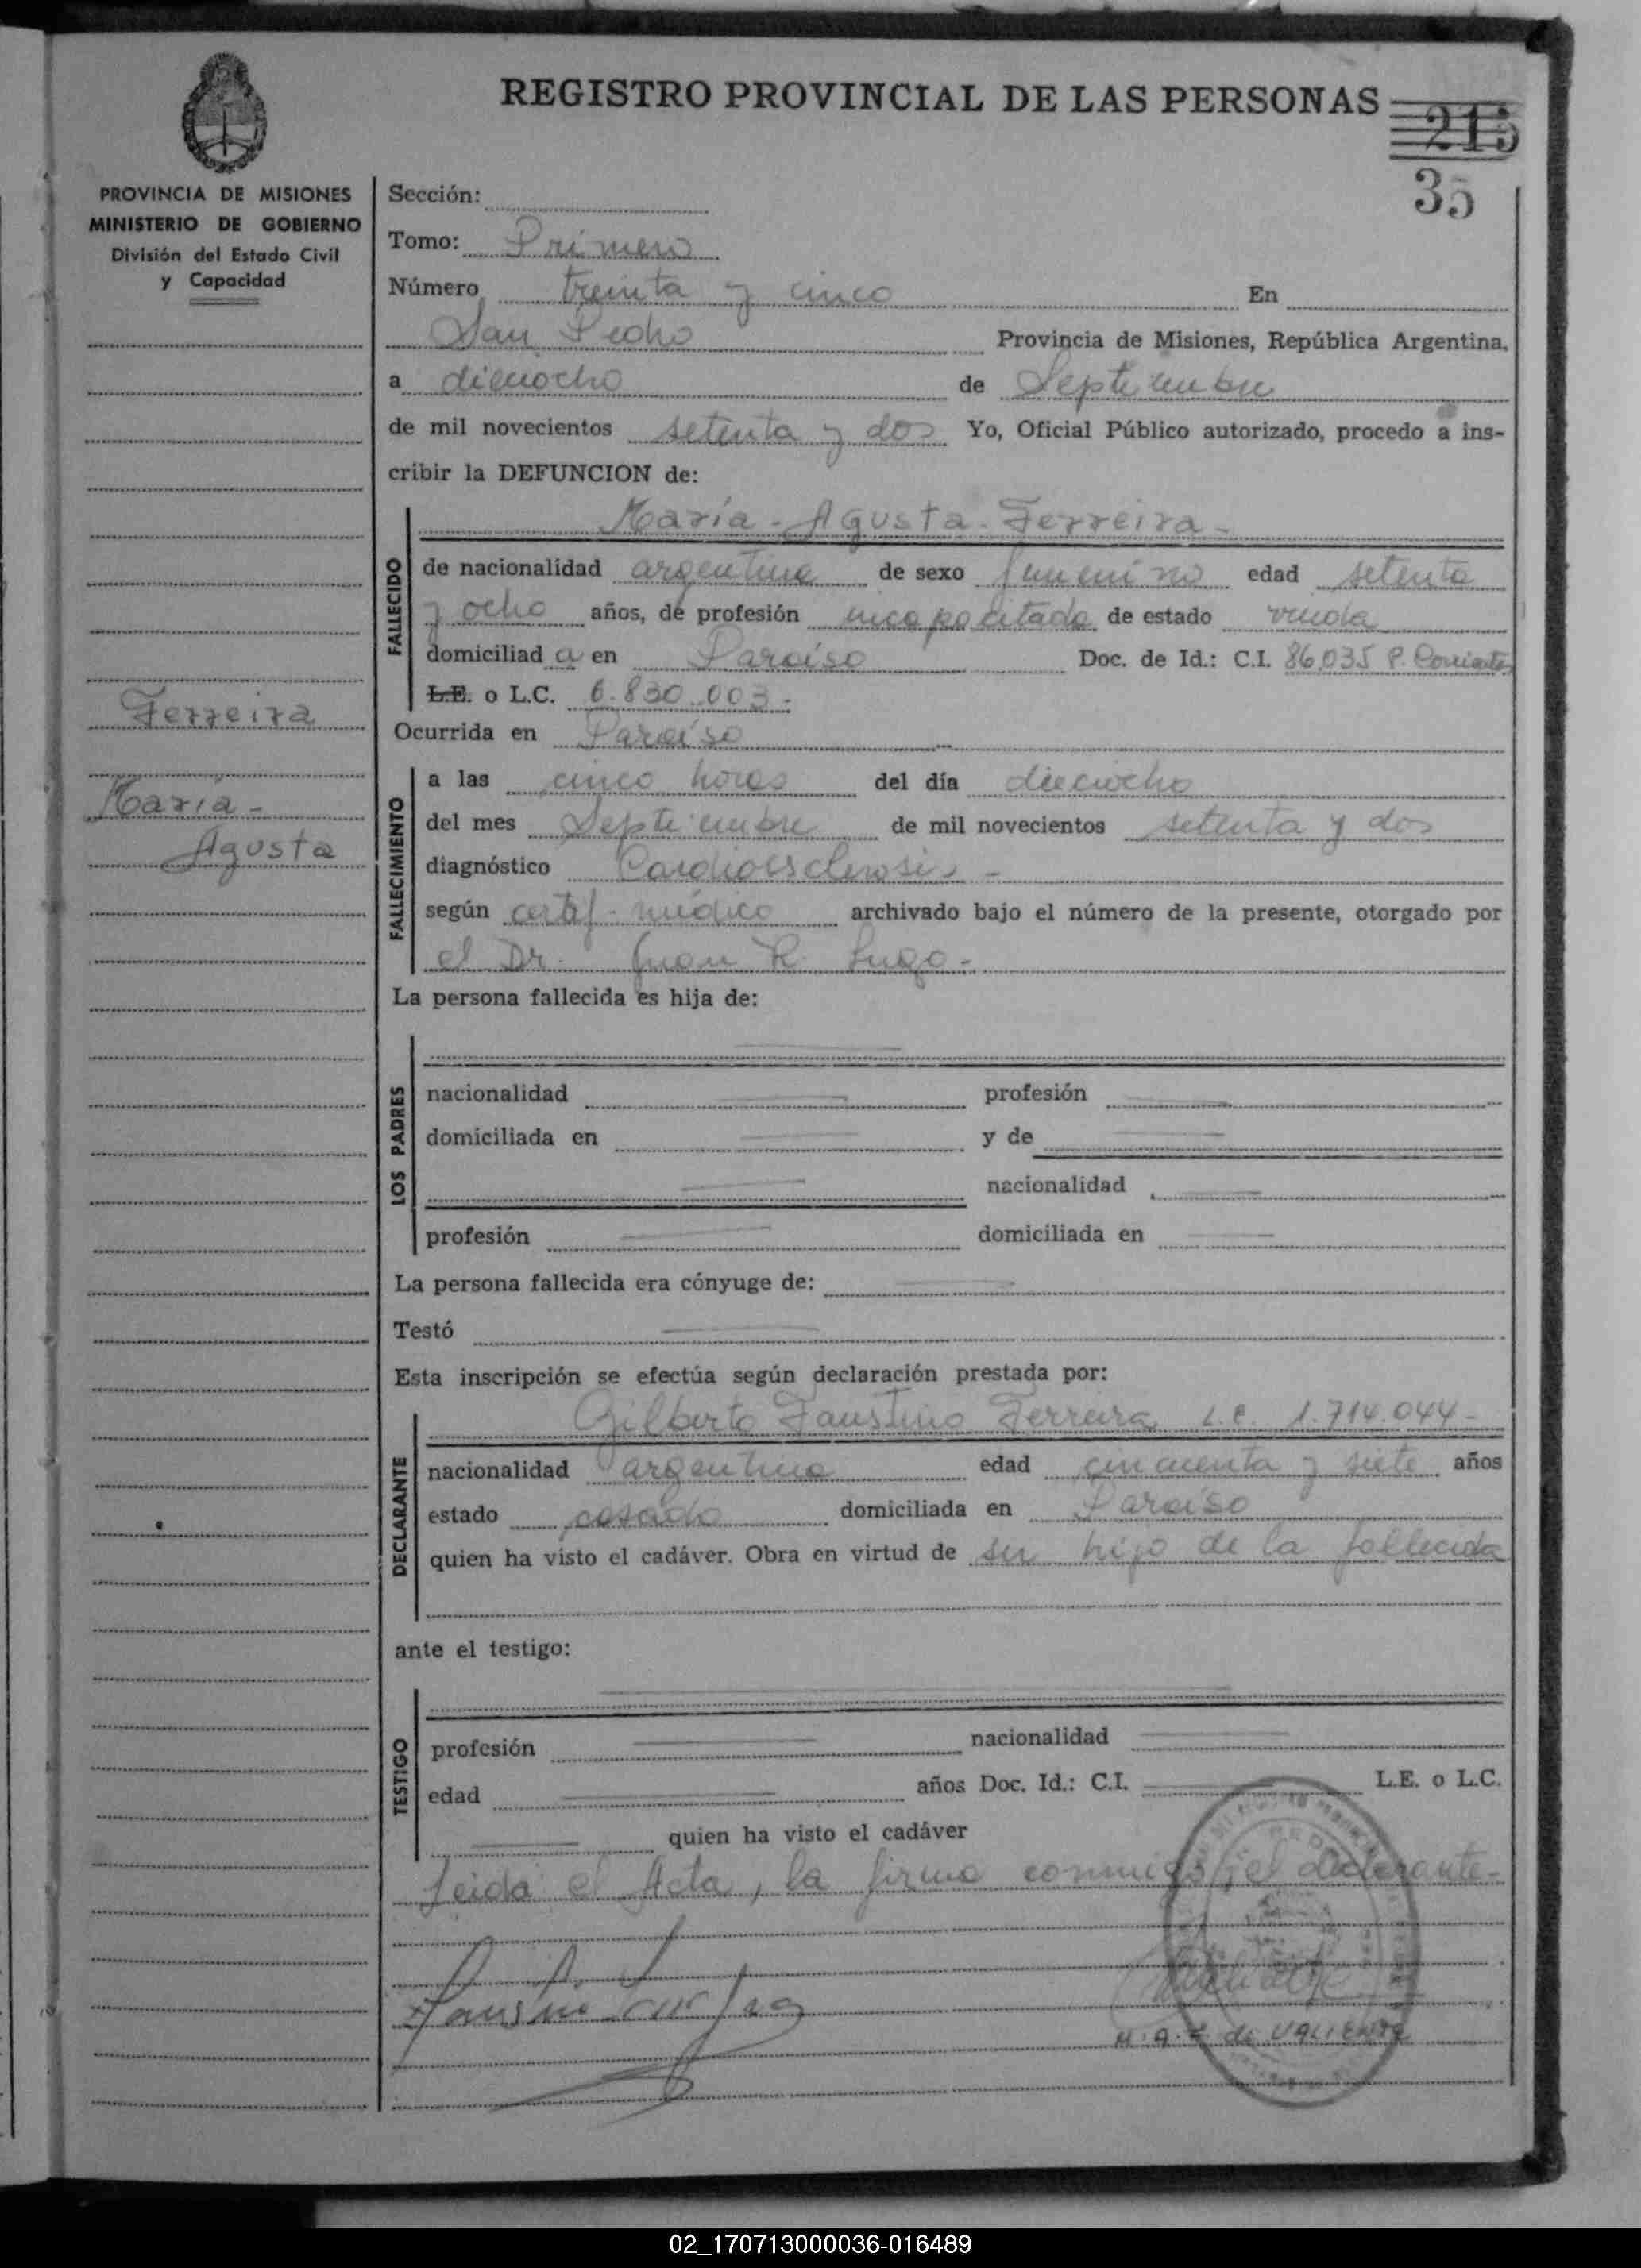 REGISTRO PROVINCIAL DE LAS PERSONAS
215
35
PROVINCIA DE MISIONES
MINISTERIO DE GOBIERNO
División del Estado Civil
y Capacidad
Ferreira
María -
Agusta
Sección:
Tomo: Primero
Número treinta y cinco En
San Pedro Provincia de Misiones, República Argentina,
a dieciocho de Septiembre
de mil novecientos setenta y dos Yo, Oficial Público autorizado, procedo a ins-
cribir la DEFUNCION de:
FALLECIDO
María - Agusta - Ferreira -
de nacionalidad argentina de sexo femenino edad setenta
y ocho años, de profesión incapacitada de estado viuda
domiciliad a en Paraíso Doc. de Id.: C.I. 86.035 P. Corrientes
L.E. o L.C. 6.830.003-
Ocurrida en Paraíso
FALLECIMIENTO
a las cinco horas del día dieciocho
del mes Septiembre de mil novecientos setenta y dos
diagnóstico Cardioesclerosis -
según certif. médico archivado bajo el número de la presente, otorgado por
el Dr. Juan R. Lugo -
La persona fallecida es hija de:
LOS PADRES
nacionalidad profesión
domiciliada en y de
nacionalidad
profesión domiciliada en
La persona fallecida era cónyuge de:
Testó
Esta inscripción se efectúa según declaración prestada por:
DECLARANTE
Gilberto Faustino Ferreira L.E. 1.714.044-
nacionalidad argentina edad cincuenta y siete años
estado casado domiciliada en Paraíso
quien ha visto el cadáver. Obra en virtud de ser hijo de la fallecida
ante el testigo:
TESTIGO
profesión nacionalidad
edad años Doc. Id.: C.I. L.E. o L.C.
quien ha visto el cadáver
Leida el Acta, la firma conmigo, el declarante-
de VALIENTE
02_170713000036-016489